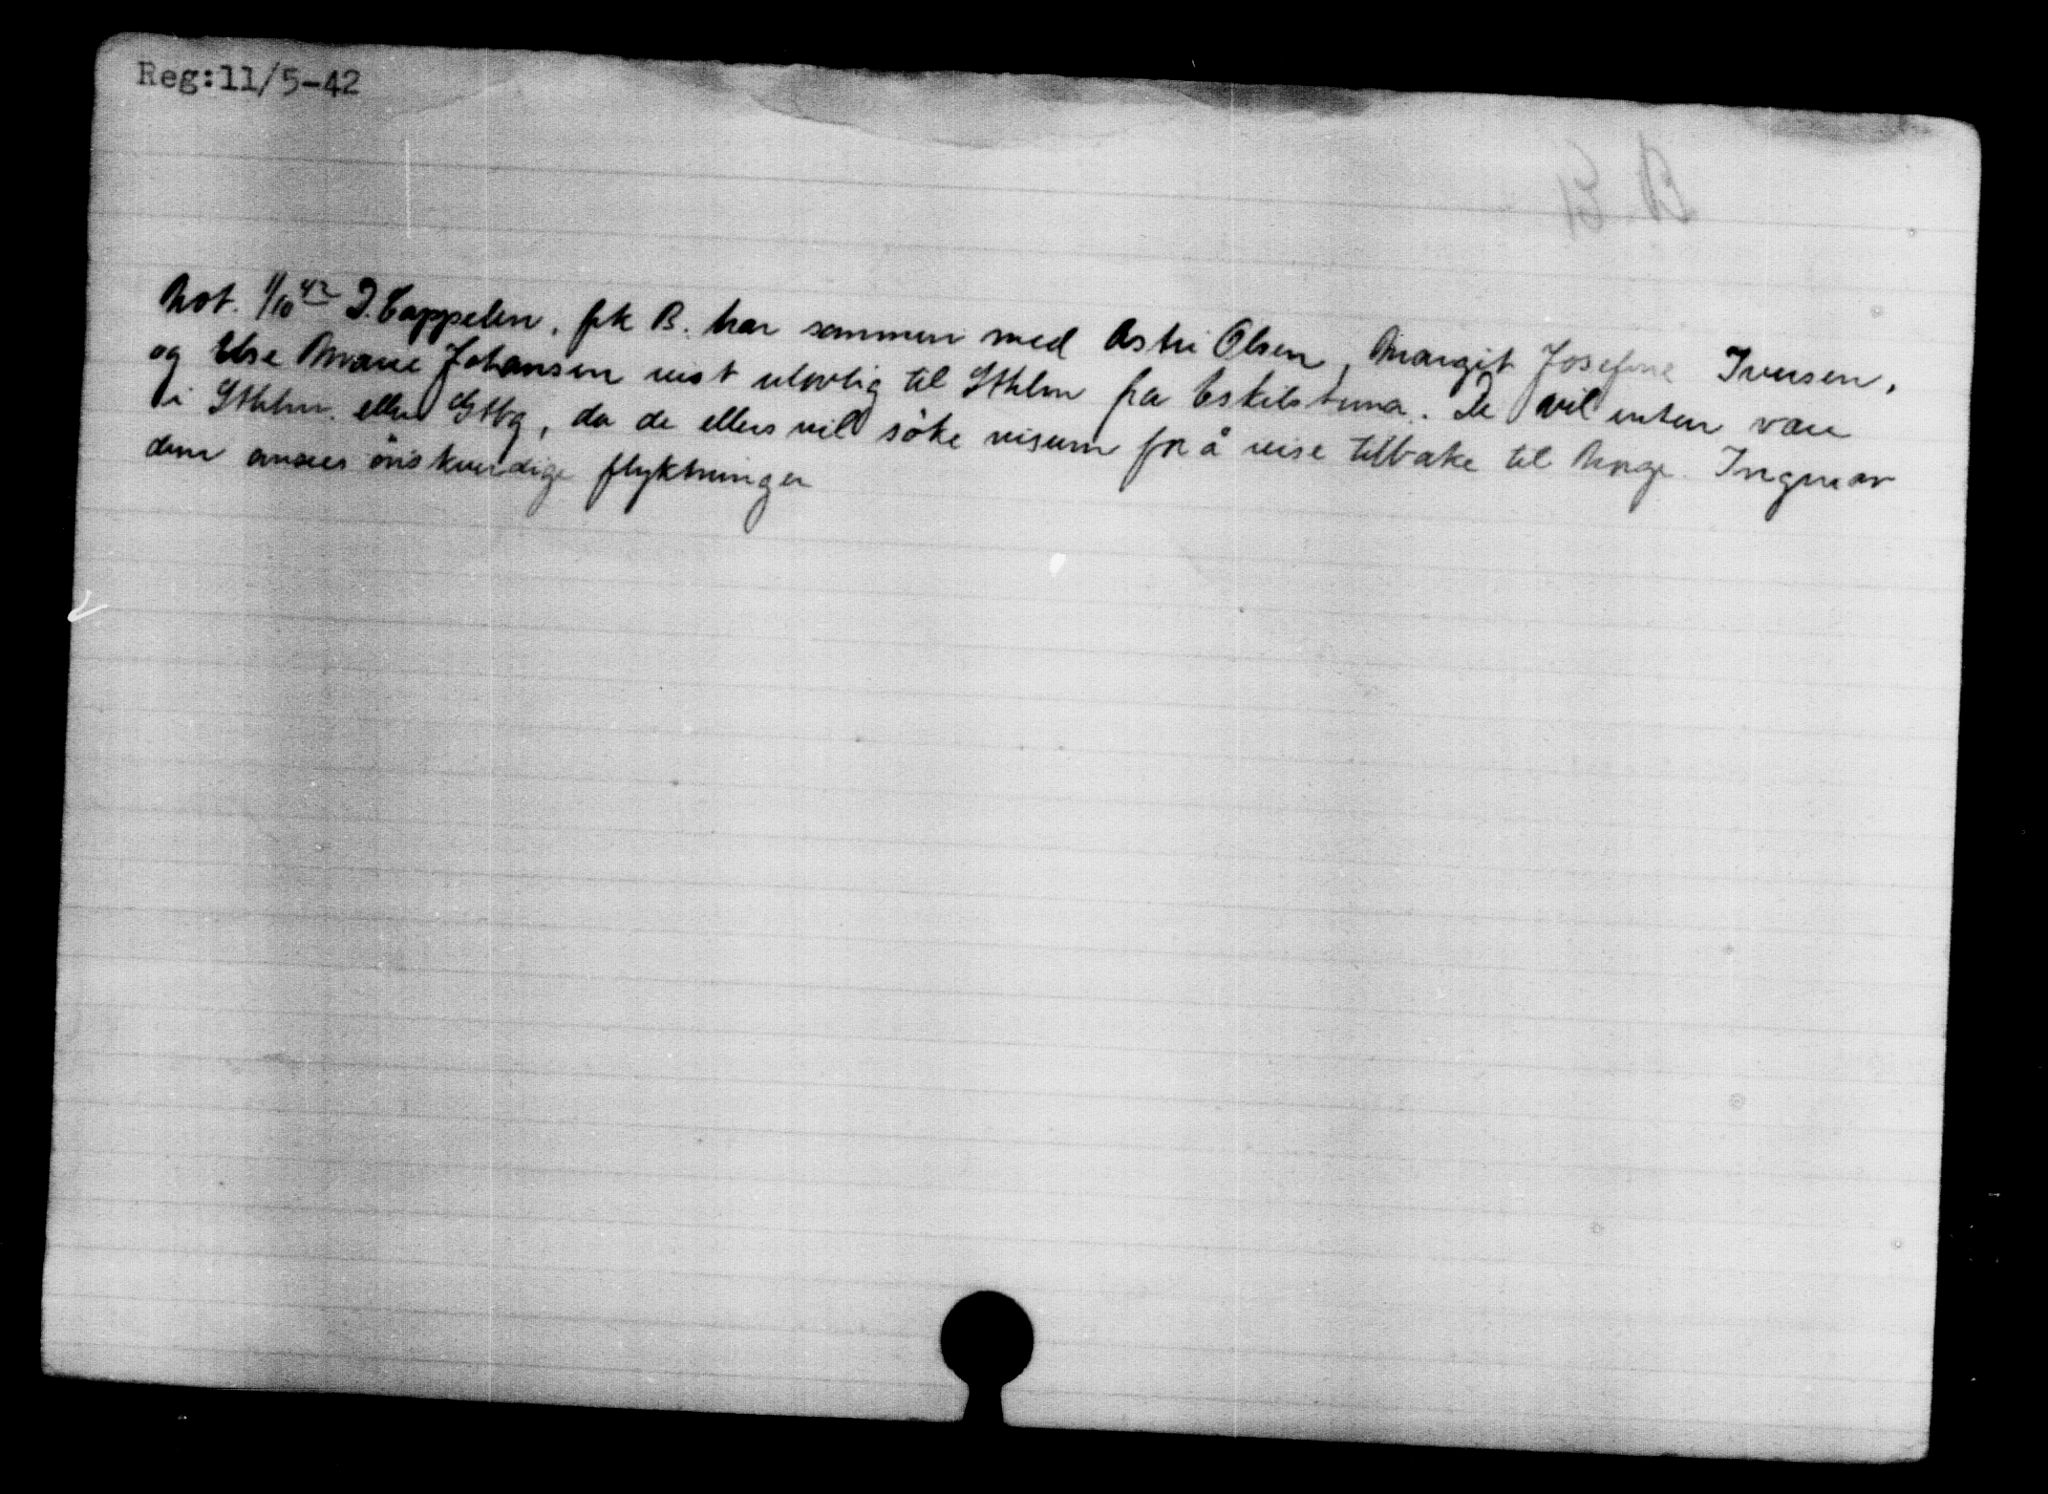 Reg:11/5-42
Not. 1/10 42 D. Cappelen. frk B. har sammen med Astri Olsen, Margit Josefine Iversen,
og Else Marie Johansen reist ulovlig til Sthlm fra Eskilstuna. De vil enten være
i Sthlm. eller Gtbg, da de ellers vil söke visum for å reise tilbake til Norge. Ingen av
dem ansees önskverdige flyktninger